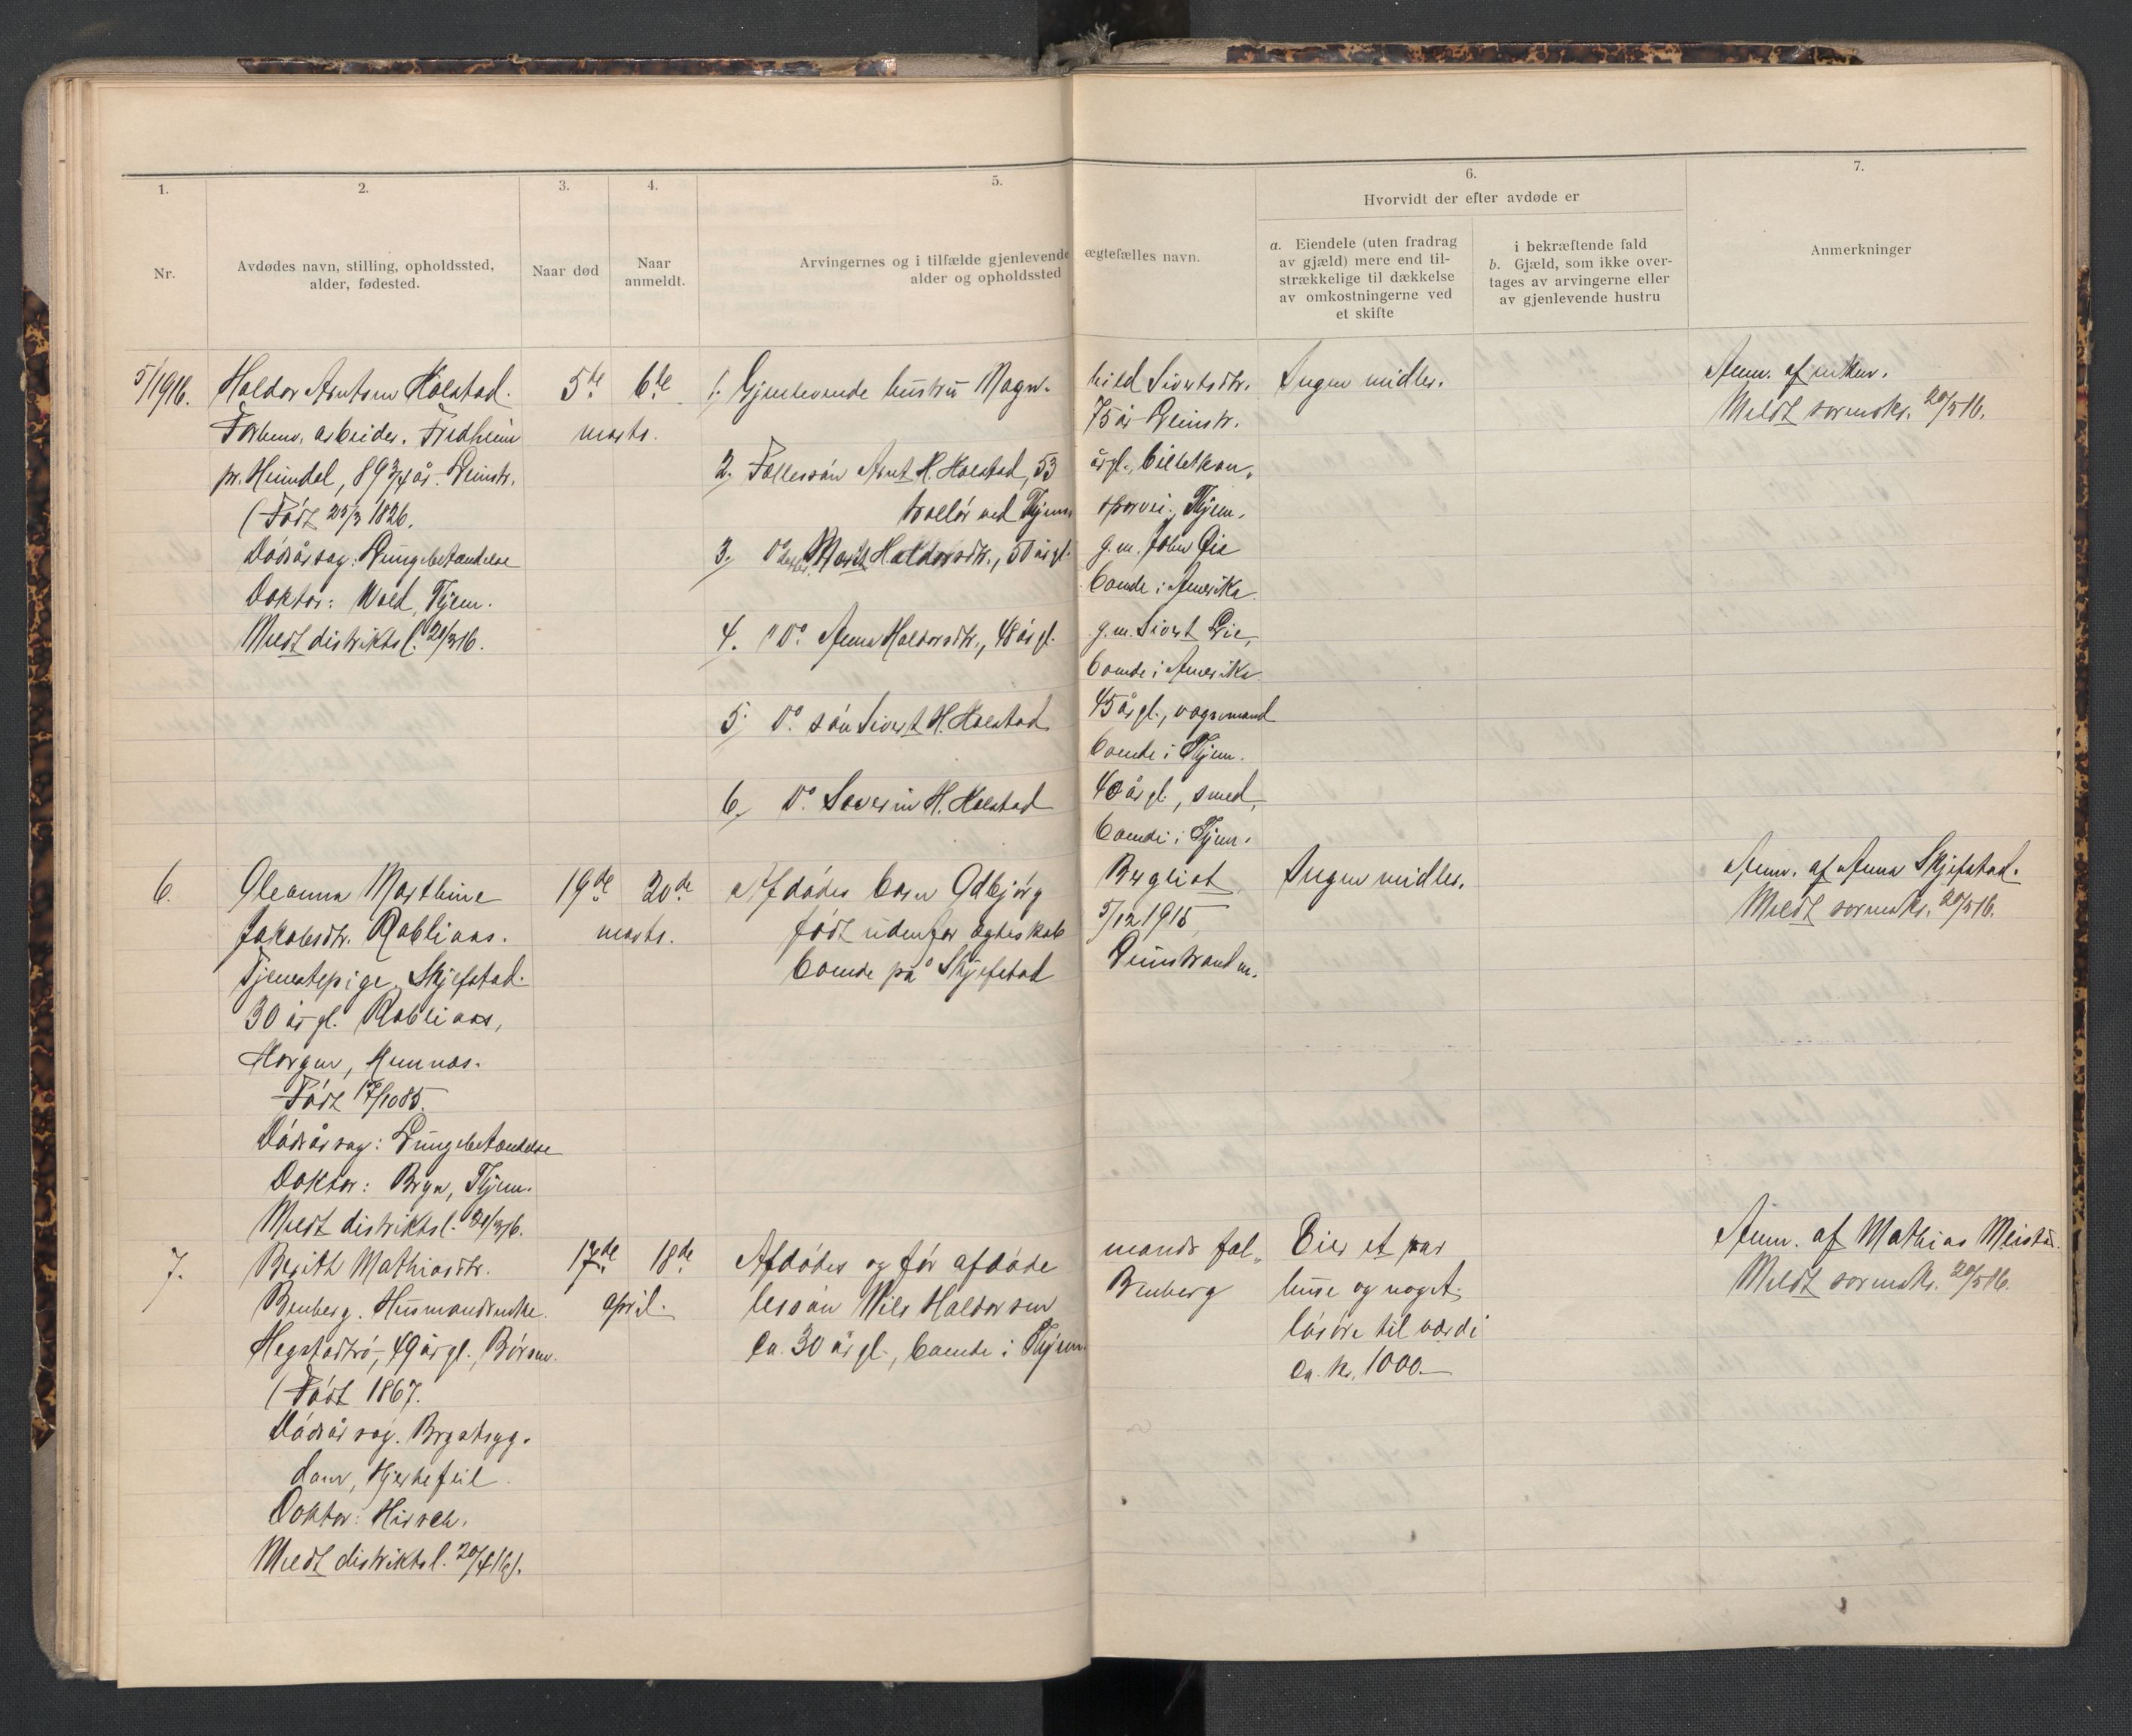 1.
2.
3.
4.
5.
6.
7.
Nr.
Avdødes navn, stilling, opholdssted,
alder, fødested.
Naar død
Naar
anmeldt.
Arvingernes og i tilfælde gjenlevende ægtefælles navn.
alder og opholdssted
Hvorvidt der efter avdøde er
a. Eiendele (uten fradrag
av gjæld) mere end til-
strækkelige til dækkelse
av omkostningerne ved
et skifte
i bekræftende fald
b. Gjæld, som ikke over-
tages av arvingerne eller
av gjenlevende hustru
Anmerkninger
5/1916.
Haldor Arntsen Holstad.
Forhenv. arbeider. Fredheim
pr. Heimdal, 89 3/4 år. Leinstr.
(Født 25/3 1826.
Dødsårsag: Lungebetændelse
Doktor: Wold, Thjem.
Meldt distriktsl. 20/3 16.
5te 6te
marts.
1. Gjenlevende hustru Magn-
hild Sivertsdtr.
75 år Leinstr.
2. Fællessøn Arnt H. Holstad, 53
årgl., billetkon-
trollør ved Thjems
sporvei, Thjem.
3. Do datter Marit Haldorsdtr., 50 årgl.
g.m. John Lie
boende i Amerika
4. " Do. Anna Haldorsdtr., 48 årgl.
g.m. Sivert Lie,
boende i Amerika.
5. Do. søn Sivert H. Holstad
45 årgl., vognmand
boende i Thjem.
6. Do. Severin H. Holstad
40 årgl., smed,
boende i Thjem.
Ingen midler.
Anm. af enken.
Meldt sorenskr. 20/5 16.
6.
Oleanna Marthine
Jakobsdtr. Rabliaas.
Tjenestepige. Skjefstad.
30 år gl. Rabliaas,
Korgen, Hemnæs.
Født 17/10 85.
Dødsårsag: Lungebetændelse
Doktor: Bryn, Thjem.
Meldt distriktsl. 21/3 16.
19de 20de
marts.
Afdødes barn Odbjørg
Bergliot
født udenfor ægteskab
5/12 1915,
boende på Skjefstad
Leinstrand m.
Ingen midler.
Anm. af Anna Skjefstad.
Meldt sorenskr. 20/5 16.
7.
Berith Mathiasdtr.
Benberg. Husmandsenke.
Hegstadtrø, 49 årgl., Børsen.
(Født 1867.
Dødsårsag. Brystsyg-
dom, Hjertefeil
Doktor: Hirsch.
Meldt distriktsl. 20/4 16).
17de 18de
april.
Afdødes og før afdøde
mands fæl-
lessøn Nils Haldorsen
Benberg
ca. 30 årgl., boende i Thjem.
Eier et par
huse og noget
løsøre til værdi
ca. kr. 1000.—
Anm. af Mathias
Meldt sorenskr. 20/5 16.